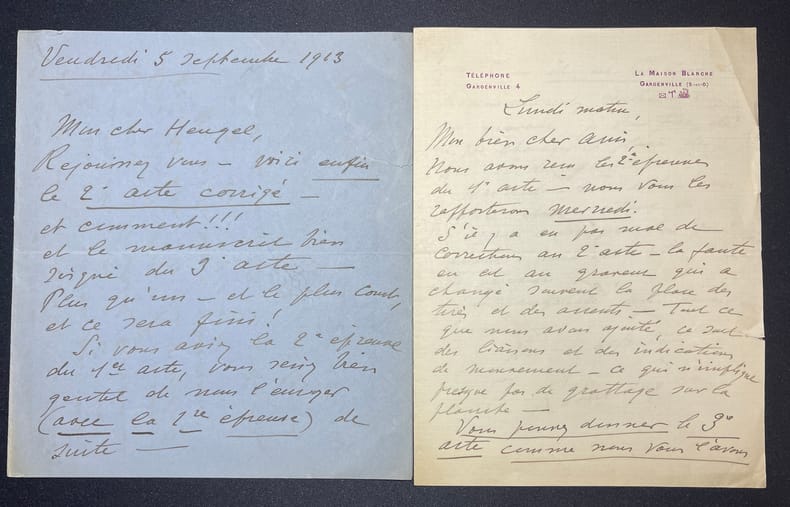 Vendredi 5 Septembre 1913
Mon cher Heugel,
Rejouissez vous – voici enfin
le 2e acte corrigé –
et comment!!!
et le manuscrit bien
soigné du 3e acte –
Plus qu'un – et le plus court,
et ce sera fini!
Si vous aviez la 2e épreuve
du 1er acte, vous seriez bien
gentil de nous l'envoyer
(avec la 1re épreuve) de
suite –
TÉLÉPHONE
GARGENVILLE 4
LA MAISON BLANCHE
GARGENVILLE (S-ET-O)
Lundi matin,
Mon bien cher ami,
Nous avons reçu les 2e épreuves
du 1er acte – nous vous les
rapporterons mercredi.
S'il y a eu pas mal de
corrections au 2e acte – la faute
en est au graveur qui a
changé souvent la place des
tirés et des accents – Tout ce
que nous avons ajouté, ce sont
des liaisons et des indications
de mouvement – ce qui n'implique
presque pas de grattage sur la
planche –
Vous pouvez donner le 3e
acte comme nous vous l'avons